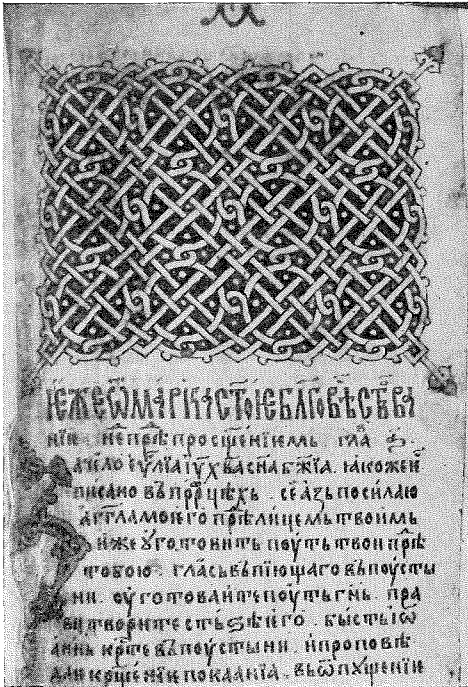 ІЕЖЕ Ѿ МАРКА СТ҃ОІЕ БЛ҃ГОВѢСТВА
нїе. нед҃ пр҃ѣ просщ҃енїемь. гла҃
ачело еѵ҃лїа іу҃ х҃ва сн҃а бж҃їа. ꙗкоже ес҃
писано въ прр҃оцѣхь. се азь посилаю
агг҃ла моіего прѣ҃ лицемь твоимь
иже уготовить поуть твои прѣ҃
тобою. глась въпїющаго въ поусты
ни. оуготоваите поуть гн҃ь. пра
ви творите стьѕѣ іего. бысть іѡ
аннь кр҃те въ поустыни. и проповѣ
даіе крщ҃енїе покаанїа. въ ѿпущенїе